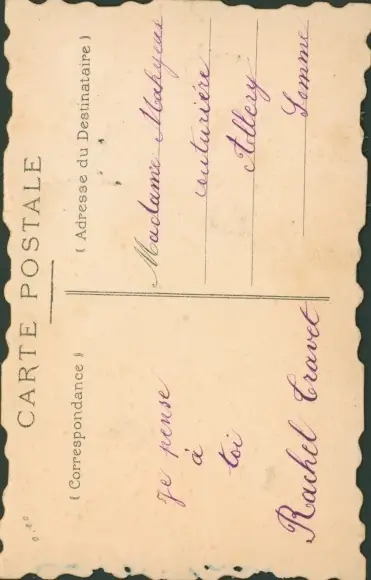 CARTE POSTALE
( Correspondance )
je pense
à
toi
Rachel Cravet
( Adresse du Destinataire )
Madame
couturière
Allery
Somme